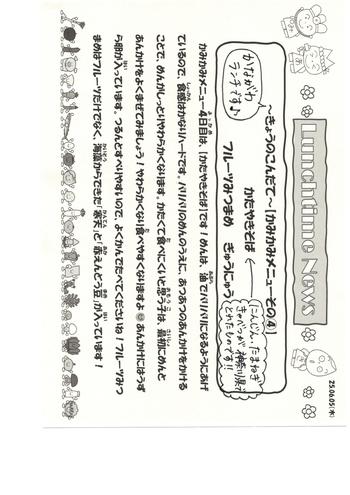 Lunchtime News
25.06.05(木)
~きょうのこんだて~【かみかみメニューその④】
かながわ
ランチです♪
かたやきそば
フルーツみつまめ ぎゅうにゅう
にんじん、たまねぎ
キャベツが神奈川県で
とれたものです!!
かみかみメニュー4日目は、【かたやきそば】です!めんは、油でパリパリになるようにあげ
ているので、食感はかなりハードです。パリパリのめんのうえに、あつあつのあんかけをかける
ことで、めんがしっとりやわらかくなります。かたくて食べにくいと思う子は、最初にめんと
あんかけをよくまぜてみましょう!やわらかくなり食べやすくなりますよ☺あんかけにはうず
ら卵が入っています。つるんとすべりやすいので、よくかんでたべてくださいね!フルーツみつ
まめはフルーツだけでなく、海藻からできた「寒天」と「赤えんどう豆」が入っています!